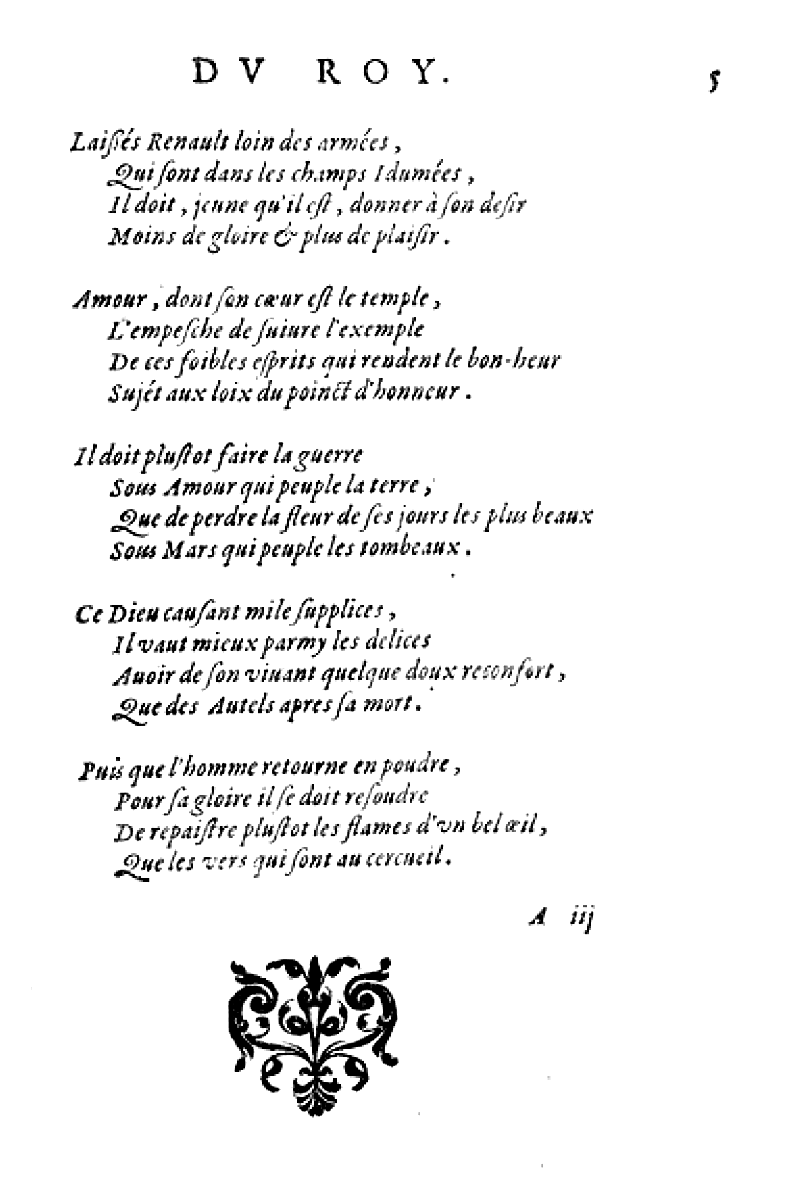 DV ROY. 5
Laiſſés Renault loin des armées,
Qui ſont dans les champs Idumées,
Il doit, jeune qu'il eſt, donner à ſon deſir
Moins de gloire & plus de plaiſir.
Amour, dont ſon cœur eſt le temple,
L'empeſche de ſuiure l'exemple
De ces foibles eſprits qui rendent le bon-heur
Sujét aux loix du poinct d'honneur.
Il doit pluſtot faire la guerre
Sous Amour qui peuple la terre,
Que de perdre la fleur de ſes jours les plus beaux
Sous Mars qui peuple les tombeaux.
Ce Dieu cauſant mile ſupplices,
Il vaut mieux parmy les delices
Auoir de ſon viuant quelque doux reconfort,
Que des Autels apres ſa mort.
Puis que l'homme retourne en poudre,
Pour ſa gloire il ſe doit reſoudre
De repaiſtre pluſtot les flames d'vn bel œil,
Que les vers qui ſont au cercueil.
A iij